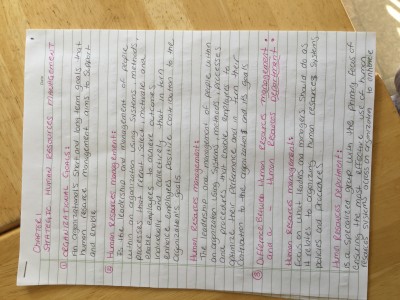 CHAPTER 1
STRATEGIC HUMAN RESOURCES MANAGEMENT
① ORGANIZATIONAL GOALS:
An organization's short and long term goals that
human resource management aims to support
and enable
② Human Resources managements
Is the leadership and management of people
within an organization using systems, methods,
processes, and procedures that enable
employees to achieve outcomes
individually and collectively that in turn
enhance employees positive contribution to the
Organization's goals
Human Resources managements
The leadership and management of people within
an organization using systems, methods, processes
and procedures that enable employees to
optimize their performance and in turn their
contribution to the organization and its goals
③ Difference Between Human Resources management
and a - Human Resources Department
Human Resources managements
Focus on what leaders and managers should do as
it relates to organizing human resources systems
policies and procedures
Human Resources Departments
is a specialized group with the primary focus of
ensuring the most effective use of human
resources systems across an organization to enhance